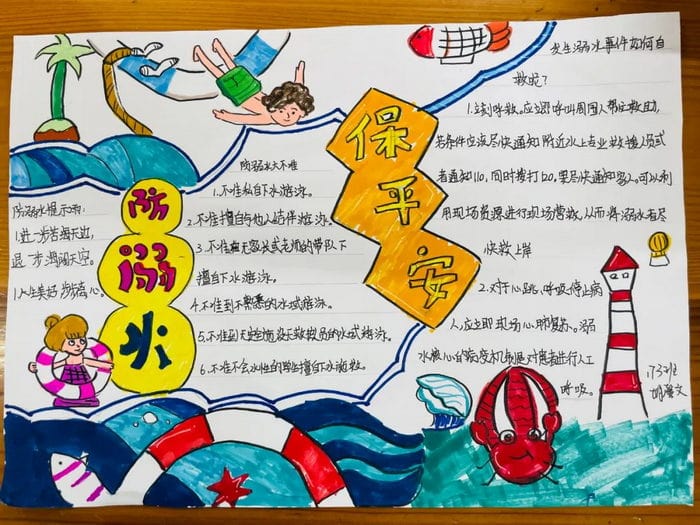 防溺水
保平安
防溺水提示语:
1.进一步苦海无边,
退一步海阔天空。
防溺水六不准
1.不准私自下水游泳。
2.不准擅自与他人结伴游泳。
3.不准在无家长或老师的带队下
擅自下水游泳。
4.不准到不熟悉的水域游泳。
5.不准到无安全设施无救援员的水域游泳。
6.不准不会水性的学生擅自下水施救。
发生溺水事件如何自
救呢?
1.立刻呼救。应立即呼叫周围人帮忙救助,
若条件应该尽快通知附近水上专业救援人员或
者通知110,同时拨打120,更尽快通知家人。可以利
用现场资源进行现场营救,从而将溺水者尽
快救上岸
2.对于心跳,呼吸停止病
人,应立即现场心肺复苏。溺
水核心的病变机制是对患者进行人工
呼吸。
173班